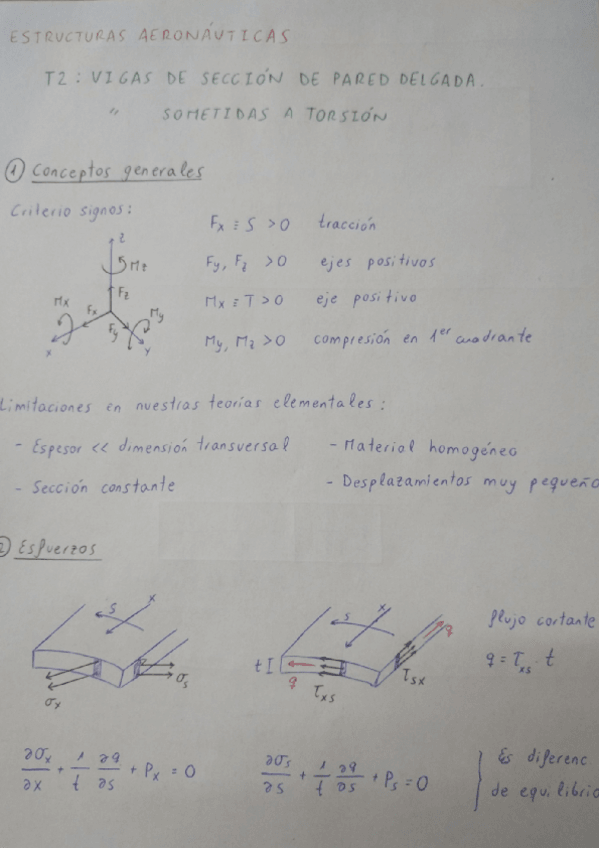 ESTRUCTURAS AERONÁUTICAS
T2: VIGAS DE SECCIÓN DE PARED DELGADA.
" SOMETIDAS A TORSIÓN
① Conceptos generales
Criterio signos:
Fx ≡ S > 0 tracción
Fy, Fz > 0 ejes positivos
Mx ≡ T > 0 eje positivo
My, Mz > 0 compresión en 1er cuadrante
z
Mz
Fz
Mx Fx My
Fy
x y
Limitaciones en nuestras teorías elementales:
- Espesor << dimensión transversal - Material homogéneo
- Sección constante - Desplazamientos muy pequeño
② Esfuerzos
s x
σx σs
s x q
t q τxs τsx
flujo cortante
q = τxs · t
∂σx/∂x + 1/t ∂q/∂s + Px = 0
∂σs/∂s + 1/t ∂q/∂s + Ps = 0
Es diferenc
de equilibrio